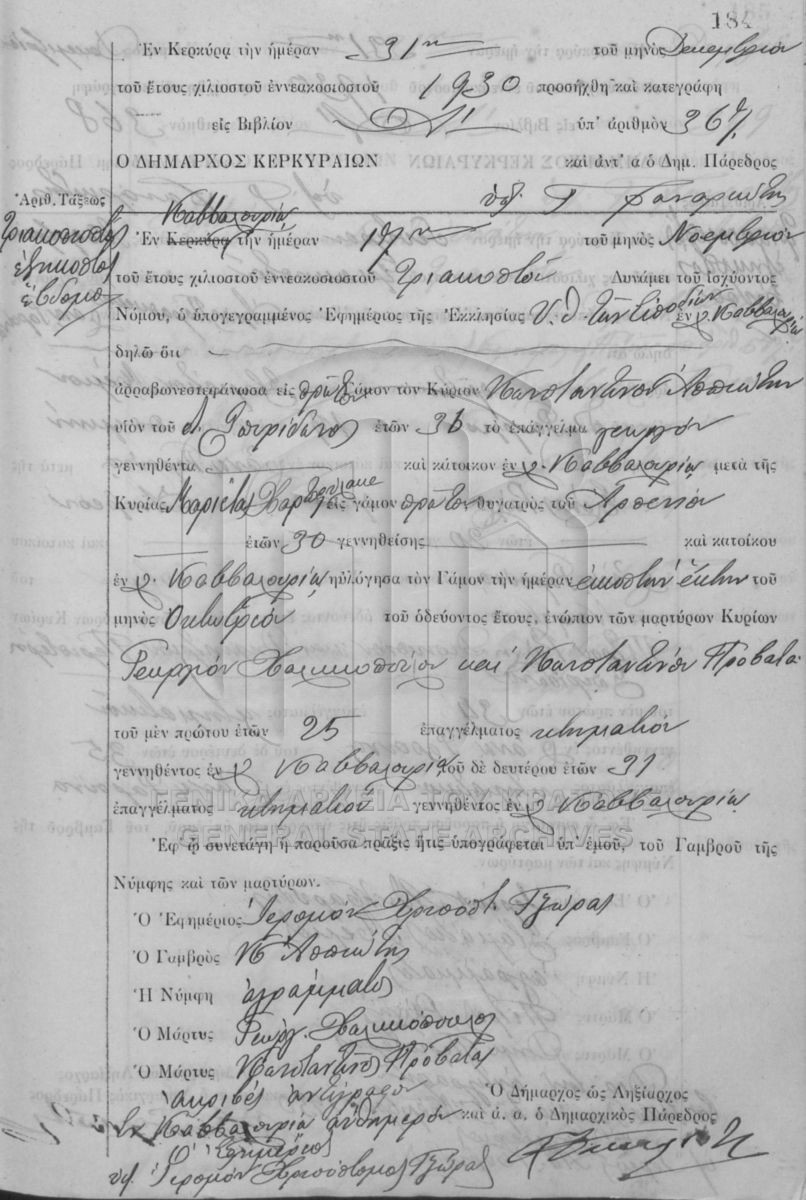 184
Ἐν Κερκύρᾳ τὴν ἡμέραν 31ην τοῦ μηνὸς Δεκεμβρίου
τοῦ ἔτους χιλιοστοῦ ἐννεακοσιοστοῦ 1930 προσήχθη καὶ κατεγράφη
εἰς Βιβλίον ὑπ' ἀριθμὸν 367
Ο ΔΗΜΑΡΧΟΣ ΚΕΡΚΥΡΑΙΩΝ καὶ ἀντ' α ὁ Δημ. Πάρεδρος
Ἀριθ. Τάξεως
Καββαλουρίᾳ
Τριακοσιοστὸς
ἑξηκοστὸς
ἕβδομος
Ἐν Κερκύρᾳ τὴν ἡμέραν 17ην τοῦ μηνὸς Νοεμβρίου
τοῦ ἔτους χιλιοστοῦ ἐννεακοσιοστοῦ τριακοστοῦ Δυνάμει τοῦ ἰσχύοντος
Νόμου, ὁ ὑπογεγραμμένος Ἐφημέριος τῆς Ἐκκλησίας Υ. Θ. ἐν χ. Καββαλουρίᾳ
δηλῶ ὅτι
ἀρραβωνεστεφάνωσα εἰς πρῶτον γάμον τὸν Κύριον Κωνσταντῖνον Ἀσπιώτην
υἱὸν τοῦ Σπυρίδωνος ἐτῶν 36 τὸ ἐπάγγελμα γεωργὸν
γεννηθέντα καὶ κάτοικον ἐν χ. Καββαλουρίᾳ μετὰ τῆς
Κυρίας Μαριέτας εἰς γάμον πρῶτον θυγατρὸς τοῦ Ἀρσενίου
ἐτῶν 30 γεννηθείσης καὶ κατοίκου
ἐν χ. Καββαλουρίᾳ ηὐλόγησα τὸν Γάμον τὴν ἡμέραν εἰκοστὴν ἕκτην τοῦ
μηνὸς Ὀκτωβρίου τοῦ ὁδεύοντος ἔτους, ἐνώπιον τῶν μαρτύρων Κυρίων
Γεωργίου Χαλικιοπούλου καὶ Κωνσταντίνου Προβατᾶ
τοῦ μὲν πρώτου ἐτῶν 25 ἐπαγγέλματος κτηματίου
γεννηθέντος ἐν χ. Καββαλουρίᾳ τοῦ δὲ δευτέρου ἐτῶν 31
ἐπαγγέλματος κτηματίου γεννηθέντος ἐν χ. Καββαλουρίᾳ
ΓΕΝΙΚΑ ΑΡΧΕΙΑ ΤΟΥ ΚΡΑΤΟΥΣ
GENERAL STATE ARCHIVES
Ἐφ' ᾧ συνετάγη ἡ παροῦσα πρᾶξις ἥτις ὑπογράφεται ὑπ' ἐμοῦ, τοῦ Γαμβροῦ τῆς
Νύμφης καὶ τῶν μαρτύρων.
Ὁ Ἐφημέριος Ἱερομόν. Χρυσόστ. Τζώρας
Ὁ Γαμβρὸς Κ Ἀσπιώτης
Ἡ Νύμφη ἀγράμματος
Ὁ Μάρτυς Γεώργ. Χαλικιόπουλος
Ὁ Μάρτυς Κωνσταντῖνος Προβατᾶς
ἀκριβὲς ἀντίγραφον
Ὁ Δήμαρχος ὡς Ληξίαρχος
Ἐν Καββαλουρίᾳ αὐθημερὸν καὶ ἀ. α. ὁ Δημαρχικὸς Πάρεδρος
Ὁ Ἐφημέριος
ὑπ. Ἱερομόν. Χρυσόστομος Τζώρας